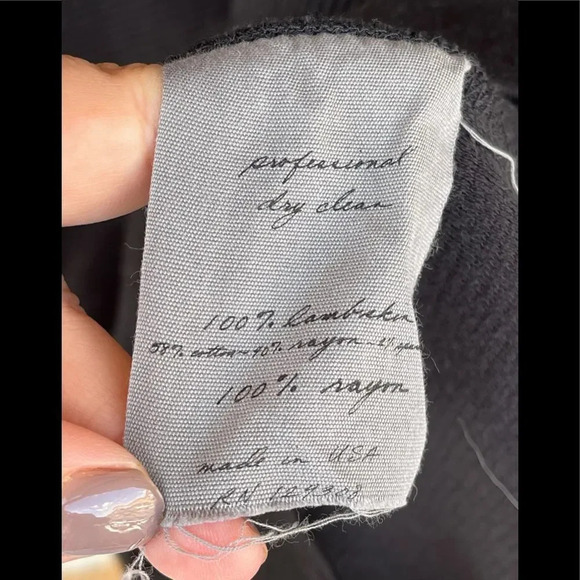 professional
dry clean
100% lambskin
58% cotton - 40% rayon - 2%
100% rayon
made in USA
RN